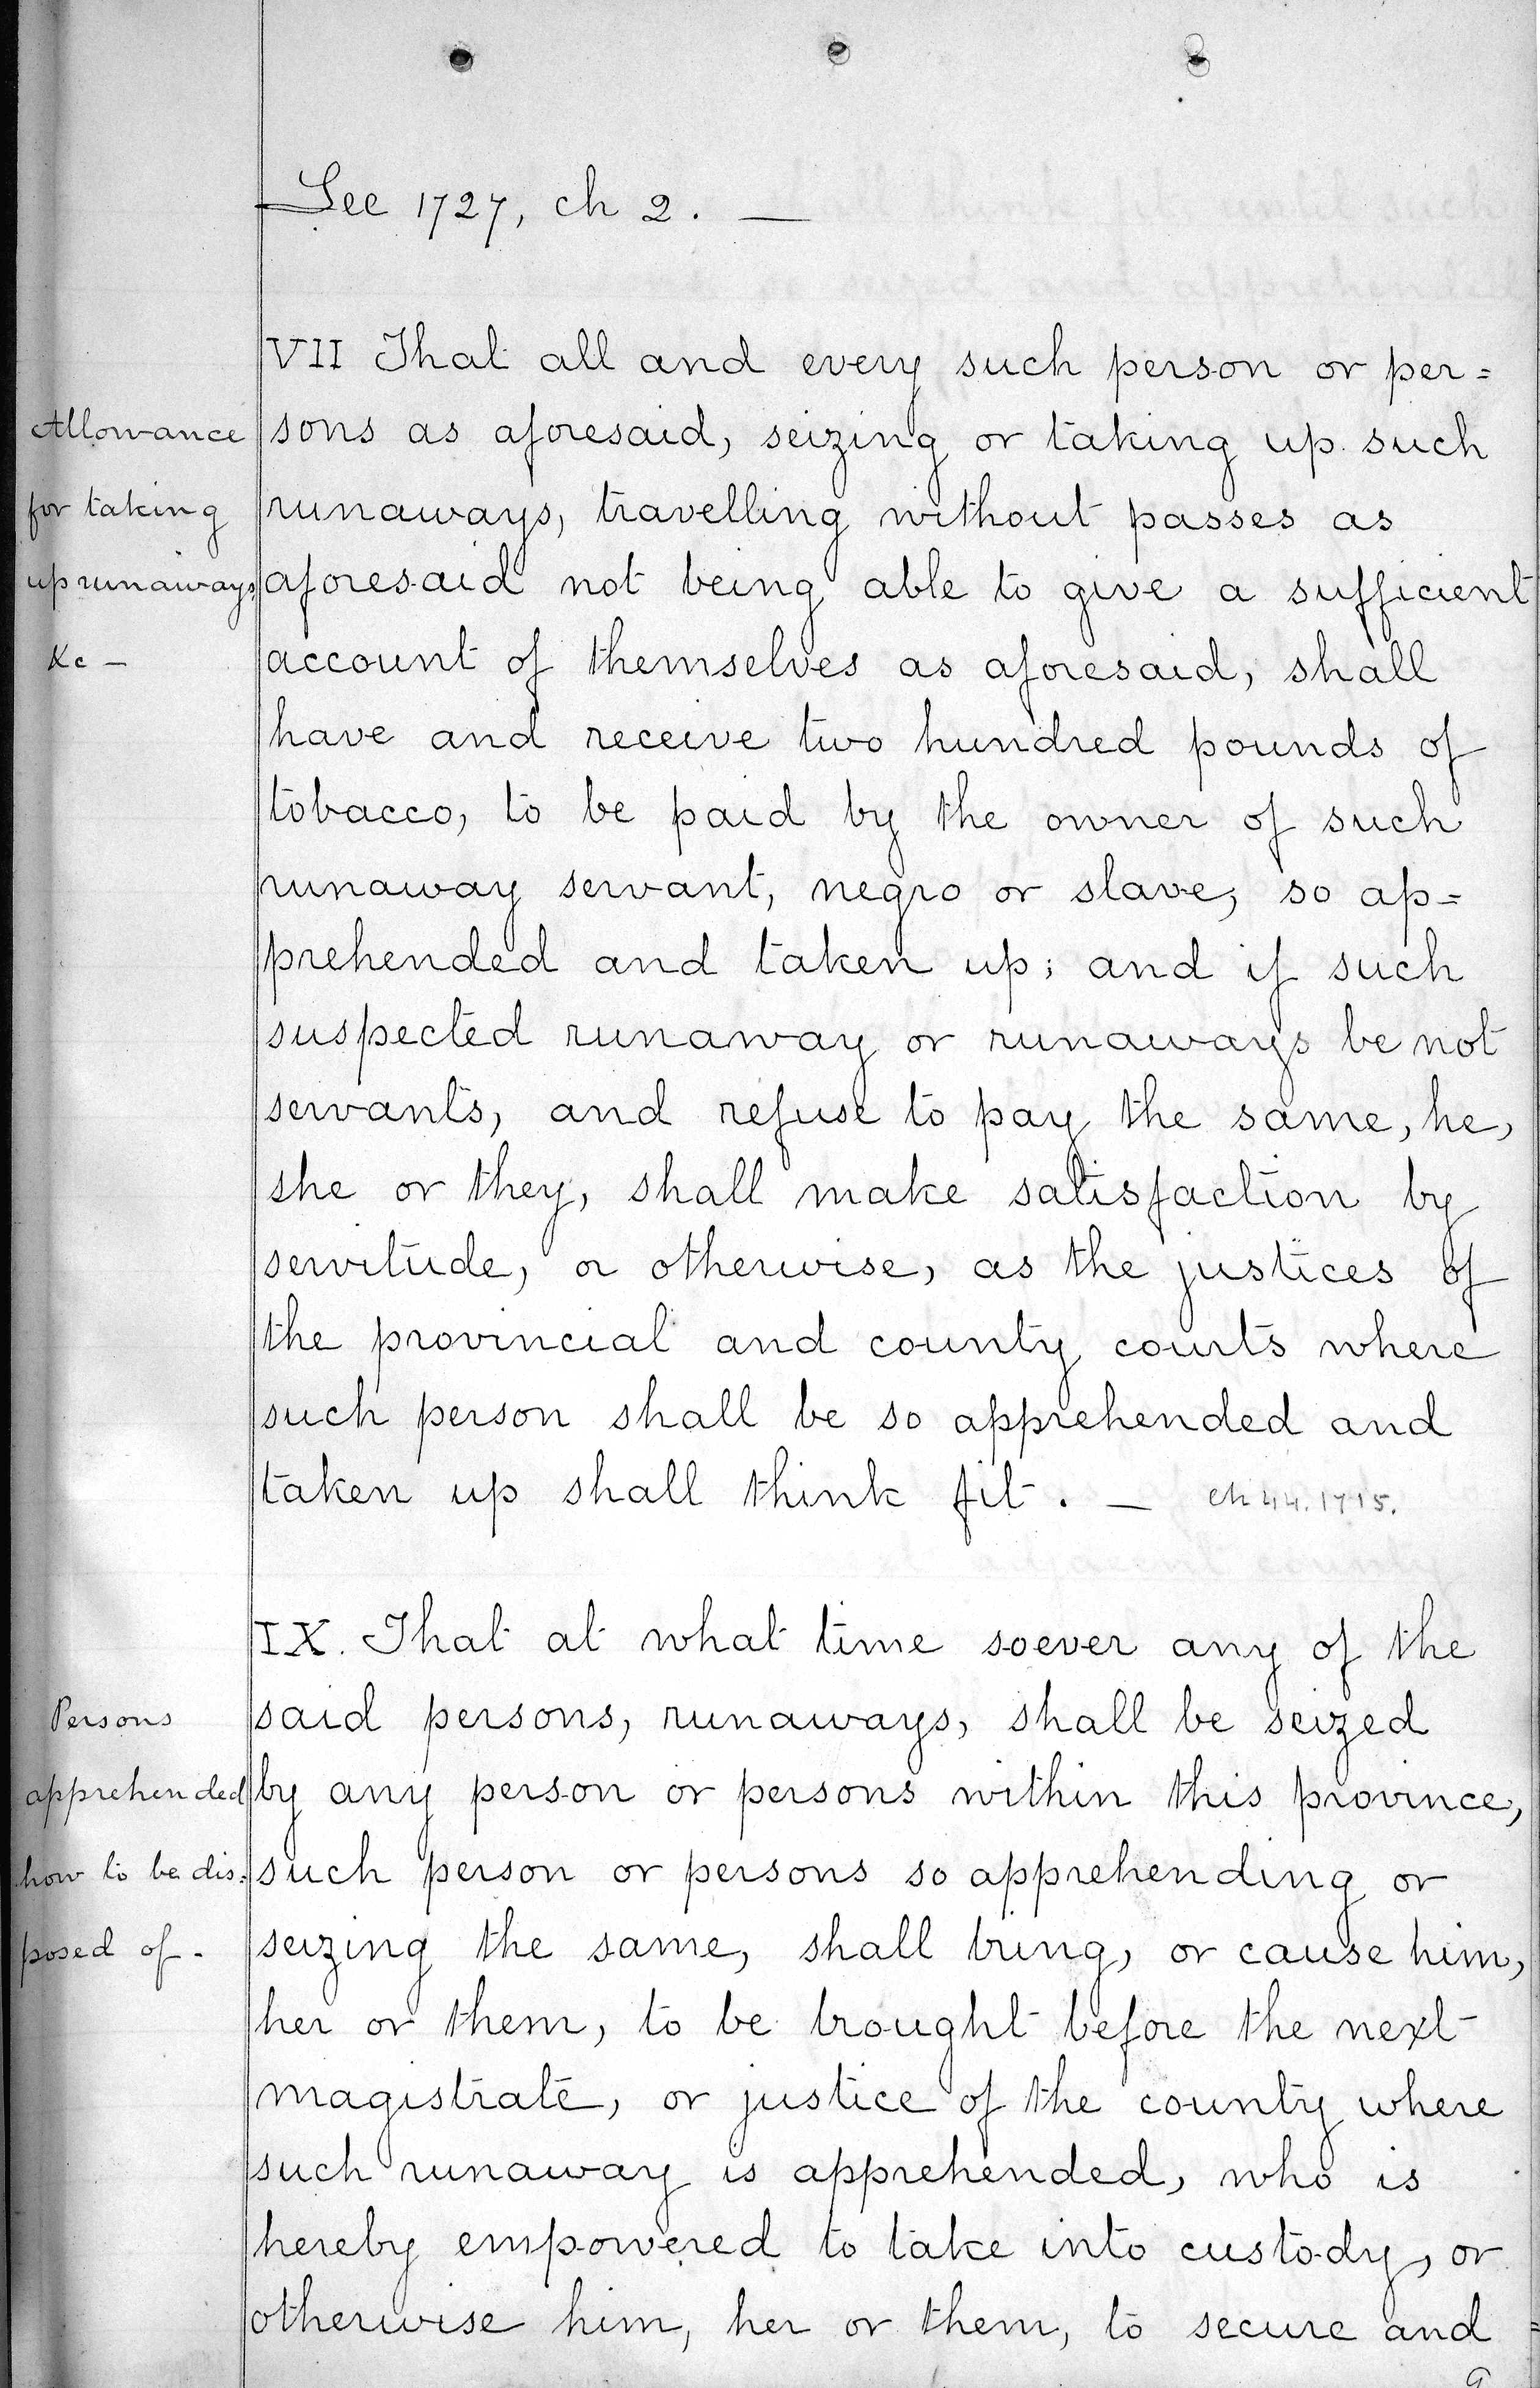 See 1727, ch 2. —
VII That all and every such person or per=
Allowance
sons as aforesaid, seizing or taking up such
for taking
runaways, travelling without passes as
up runaways
aforesaid not being able to give a sufficient
&c —
account of themselves as aforesaid, shall
have and receive two hundred pounds of
tobacco, to be paid by the owner of such
runaway servant, negro or slave, so ap=
prehended and taken up; and if such
suspected runaway or runaways be not
servants, and refuse to pay the same, he,
she or they, shall make satisfaction by
servitude, or otherwise, as the justices of
the provincial and county courts where
such person shall be so apprehended and
taken up shall think fit. — ch 44. 1715.
IX. That at what time soever any of the
Persons
said persons, runaways, shall be seized
apprehended
by any person or persons within this province,
how to be dis=
such person or persons so apprehending or
posed of.
seizing the same, shall bring, or cause him,
her or them, to be brought before the next
magistrate, or justice of the county where
such runaway is apprehended, who is
hereby empowered to take into custody, or
otherwise him, her or them, to secure and